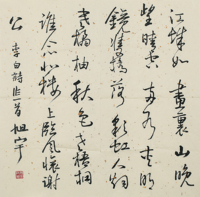 江城如畫裏山晚
望晴空兩水夾明
鏡雙橋落彩虹人烟
寒橘柚秋色老梧桐
誰念北樓上臨風懷謝
公 李白詩一首 旭宇